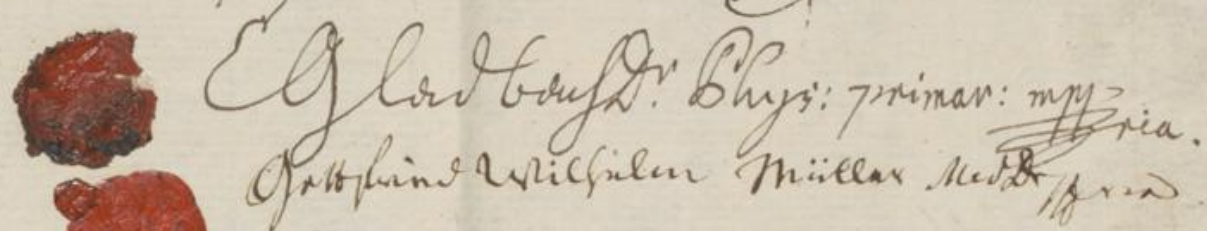 Gladbach Dr. Phys: primar: mppria.
Gottfried Wilhelm Müller Med Dr mppria